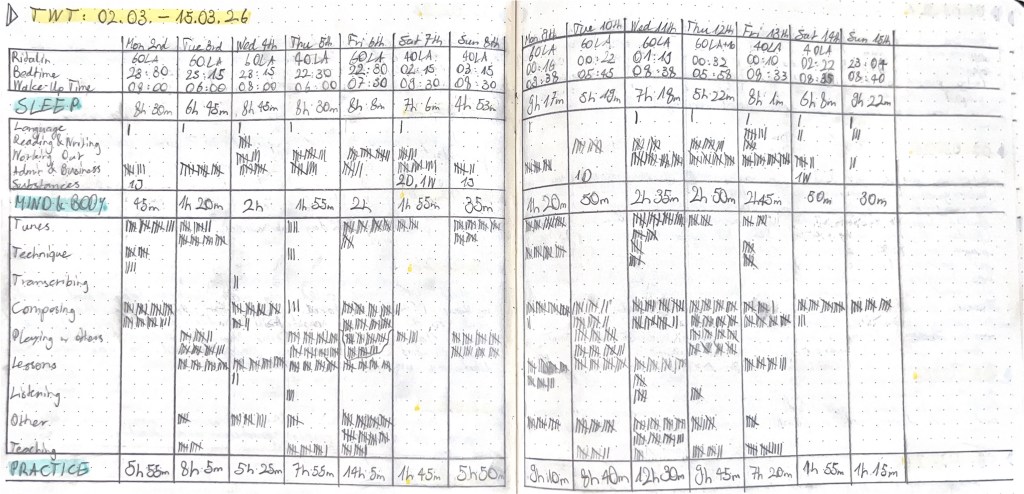 TWT: 02.03. – 15.03.26
Mon 2nd Tue 3rd Wed 4th Thu 5th Fri 6th Sat 7th Sun 8th Mon 9th Tue 10th Wed 11th Thu 12th Fri 13th Sat 14th Sun 15th
Ritalin 60LA 60LA 60LA 40LA 60LA 40LA 40LA 60LA 60LA 60LA 60LA+10 40LA 40LA
Bedtime 23:30 23:15 23:15 22:30 22:30 02:15 03:15 00:16 00:22 01:15 00:32 00:10 02:22 23:04
Wake-Up Time 08:00 06:00 08:00 06:00 07:30 09:30 08:30 08:38 05:45 08:38 05:58 09:33 08:35 08:40
SLEEP 8h 30m 6h 45m 8h 45m 8h 30m 8h 8m 7h 6m 4h 53m 9h 17m 5h 19m 7h 18m 5h 22m 8h 1m 6h 8m 9h 22m
Language
Reading & Writing
Working Out
Admin & Business
Substances 1J 2D, 1W 1J 1D 1W
MIND & BODY 45m 1h 20m 2h 1h 55m 2h 1h 55m 35m 1h 20m 50m 2h 35m 2h 50m 2h45m 50m 30m
Tunes
Technique
Transcribing
Composing
Playing w others
Lessons
Listening
Other
Teaching
PRACTICE 5h 55m 8h 5m 5h 25m 7h 55m 14h 5m 1h 45m 5h 50m 9h 10m 8h 40m 12h 30m 9h 45m 7h 20m 1h 55m 1h 15m